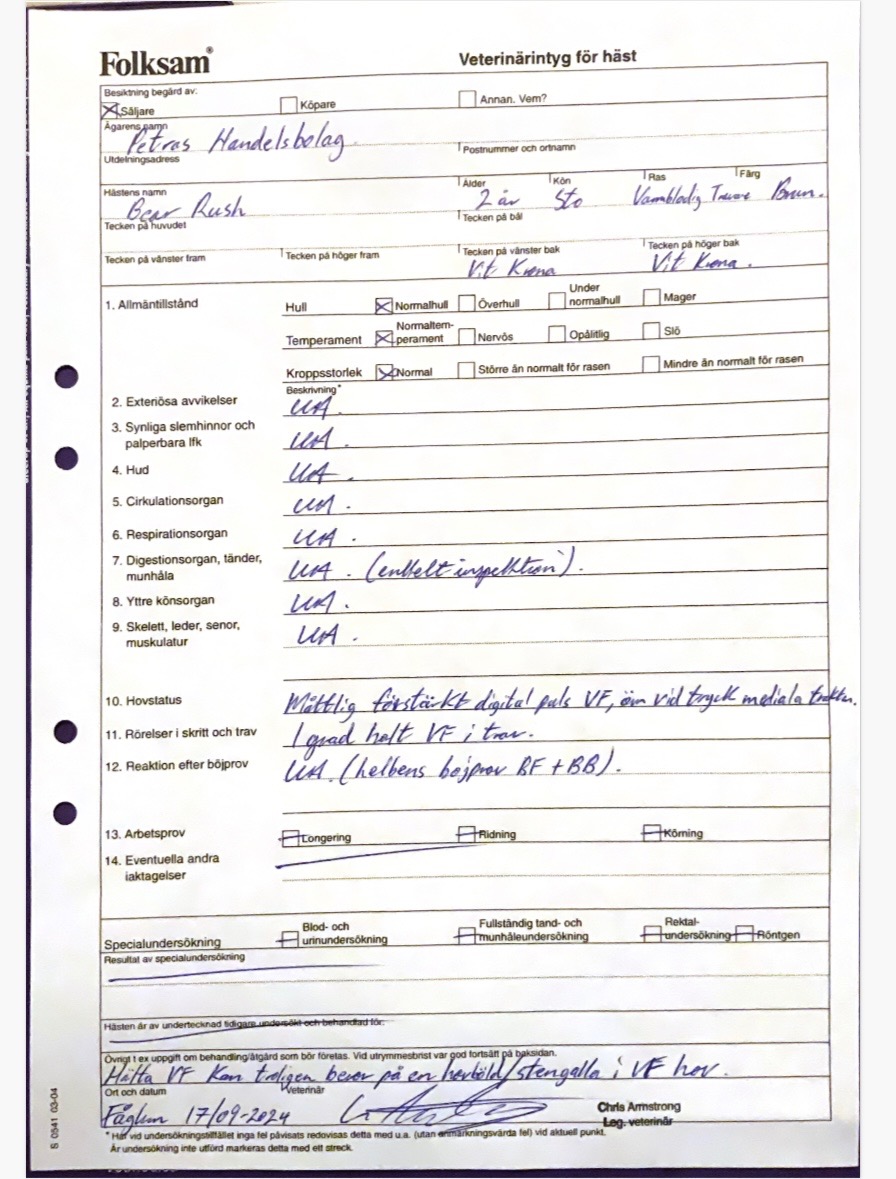 Folksam®
Veterinärintyg för häst
Besiktning begärd av:
Säljare Köpare Annan. Vem?
Ägarens namn
Petras Handelsbolag
Utdelningsadress Postnummer och ortnamn
Hästens namn Ålder Kön Ras Färg
Bear Rush 2 år Sto Varmblodig Travare Brun.
Tecken på huvudet Tecken på bål
Tecken på vänster fram Tecken på höger fram Tecken på vänster bak Tecken på höger bak
Vit Krona Vit Krona.
1. Allmäntillstånd Hull Normalhull Överhull Under normalhull Mager
Temperament Normaltem-perament Nervös Opålitlig Slö
Kroppsstorlek Normal Större än normalt för rasen Mindre än normalt för rasen
Beskrivning*
2. Exteriösa avvikelser UA.
3. Synliga slemhinnor och
palperbara lfk UA.
4. Hud UA.
5. Cirkulationsorgan UA.
6. Respirationsorgan UA.
7. Digestionsorgan, tänder,
munhåla UA. (enkelt inspektion).
8. Yttre könsorgan UA.
9. Skelett, leder, senor,
muskulatur UA.
10. Hovstatus Måttlig förstärkt digital puls VF, öm vid tryck mediala trakten.
11. Rörelser i skritt och trav 1 grad halt VF i trav.
12. Reaktion efter böjprov UA. (helbens böjprov BF + BB).
13. Arbetsprov Longering Ridning Körning
14. Eventuella andra
iaktagelser
Specialundersökning Blod- och urinundersökning Fullständig tand- och munhåleundersökning Rektal-undersökning Röntgen
Resultat av specialundersökning
Hästen är av undertecknad tidigare undersökt och behandlad för:
Övrigt t ex uppgift om behandling/åtgärd som bör företas. Vid utrymmesbrist var god fortsätt på baksidan.
Hälta VF Kan troligen beror på en hovböld/stengalla i VF hov.
Ort och datum Veterinär
Fåglum 17/09-2024
Chris Armstrong
Leg. veterinär
* Har vid undersökningstillfället inga fel påvisats redovisas detta med u.a. (utan anmärkningsvärda fel) vid aktuell punkt.
Är undersökning inte utförd markeras detta med ett streck.
S 0541 03-04